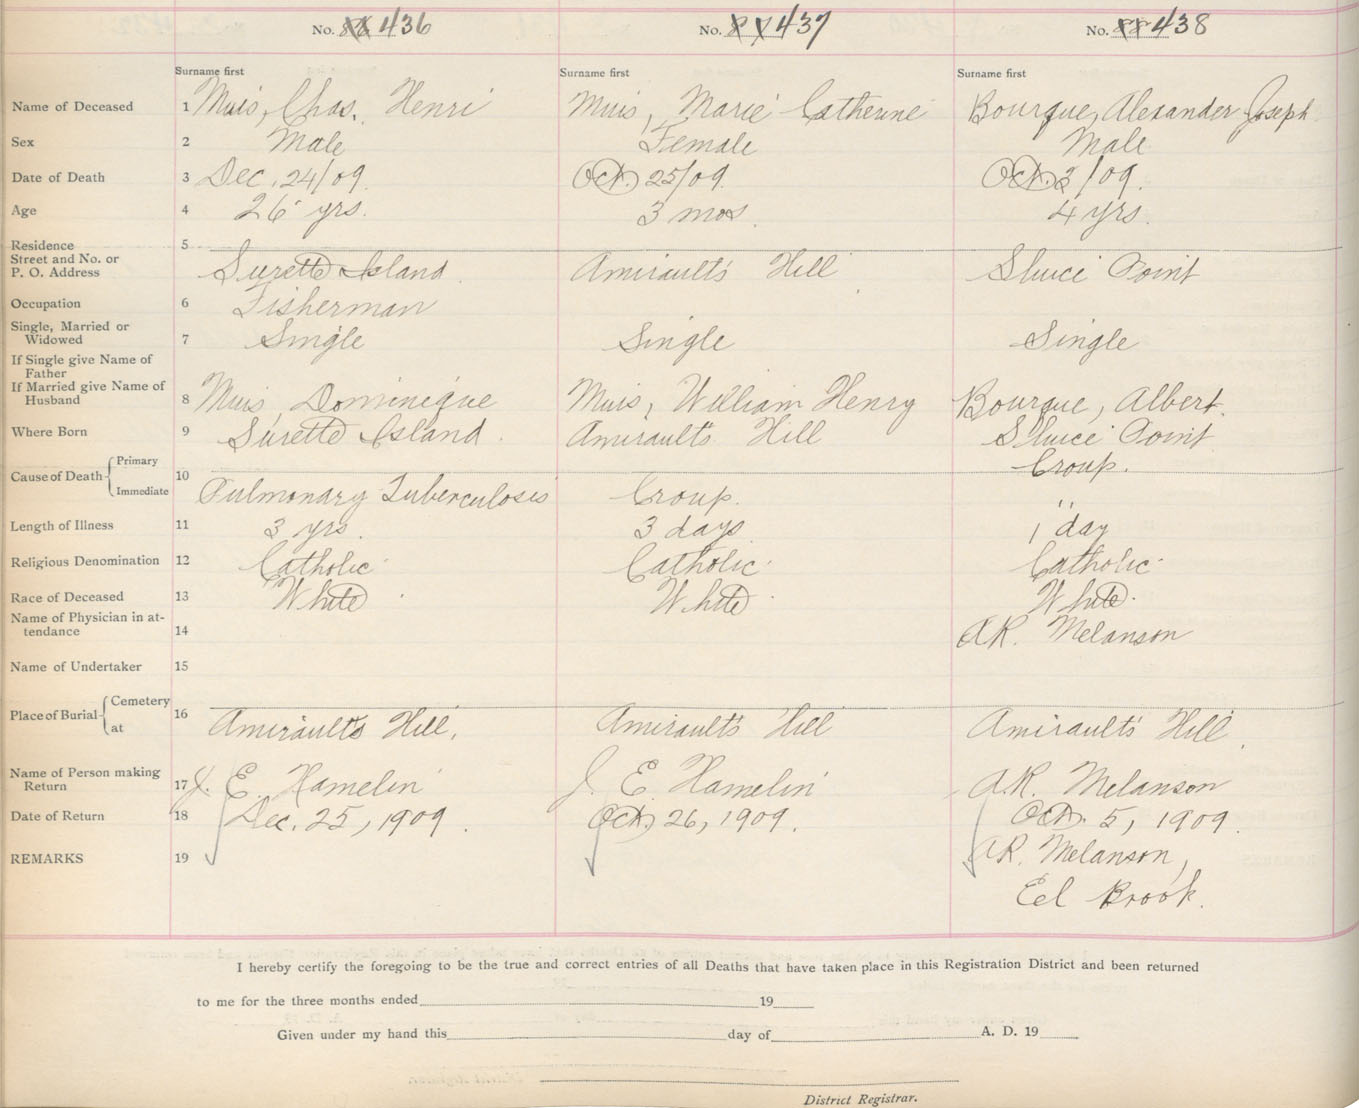 No. 436 No. 437 No. 438
Surname first Surname first Surname first
Name of Deceased 1 Muis, Chas. Henri Muis, Marie Catherine Bourque, Alexander Joseph
Sex 2 Male Female Male
Date of Death 3 Dec. 24/09. Oct. 25/09. Oct. /09.
Age 4 26 yrs. 3 mos. 4 yrs.
Residence 5
Street and No. or
P. O. Address Surette Island Amirault's Hill Sluice Point
Occupation 6 Fisherman
Single, Married or
Widowed 7 Single Single Single
If Single give Name of
Father
If Married give Name of
Husband 8 Muis, Dominique Muis, William Henry Bourque, Albert.
Where Born 9 Surette Island. Amirault's Hill Sluice Point
Cause of Death Primary 10 Croup.
Immediate Pulmonary Tuberculosis Croup. "
Length of Illness 11 3 yrs. 3 days 1 day
Religious Denomination 12 Catholic Catholic Catholic
Race of Deceased 13 White White White.
Name of Physician in at-
tendance 14 A.R. Melanson
Name of Undertaker 15
Place of Burial Cemetery 16
at Amirault's Hill. Amirault's Hill Amirault's Hill.
Name of Person making
Return 17 J. E. Hamelin J. E. Hamelin A.R. Melanson
Date of Return 18 Dec. 25, 1909. Oct. 26, 1909. Oct. 5, 1909.
REMARKS 19 A.R. Melanson,
Eel Brook.
I hereby certify the foregoing to be the true and correct entries of all Deaths that have taken place in this Registration District and been returned
to me for the three months ended 19
Given under my hand this day of A. D. 19
District Registrar.